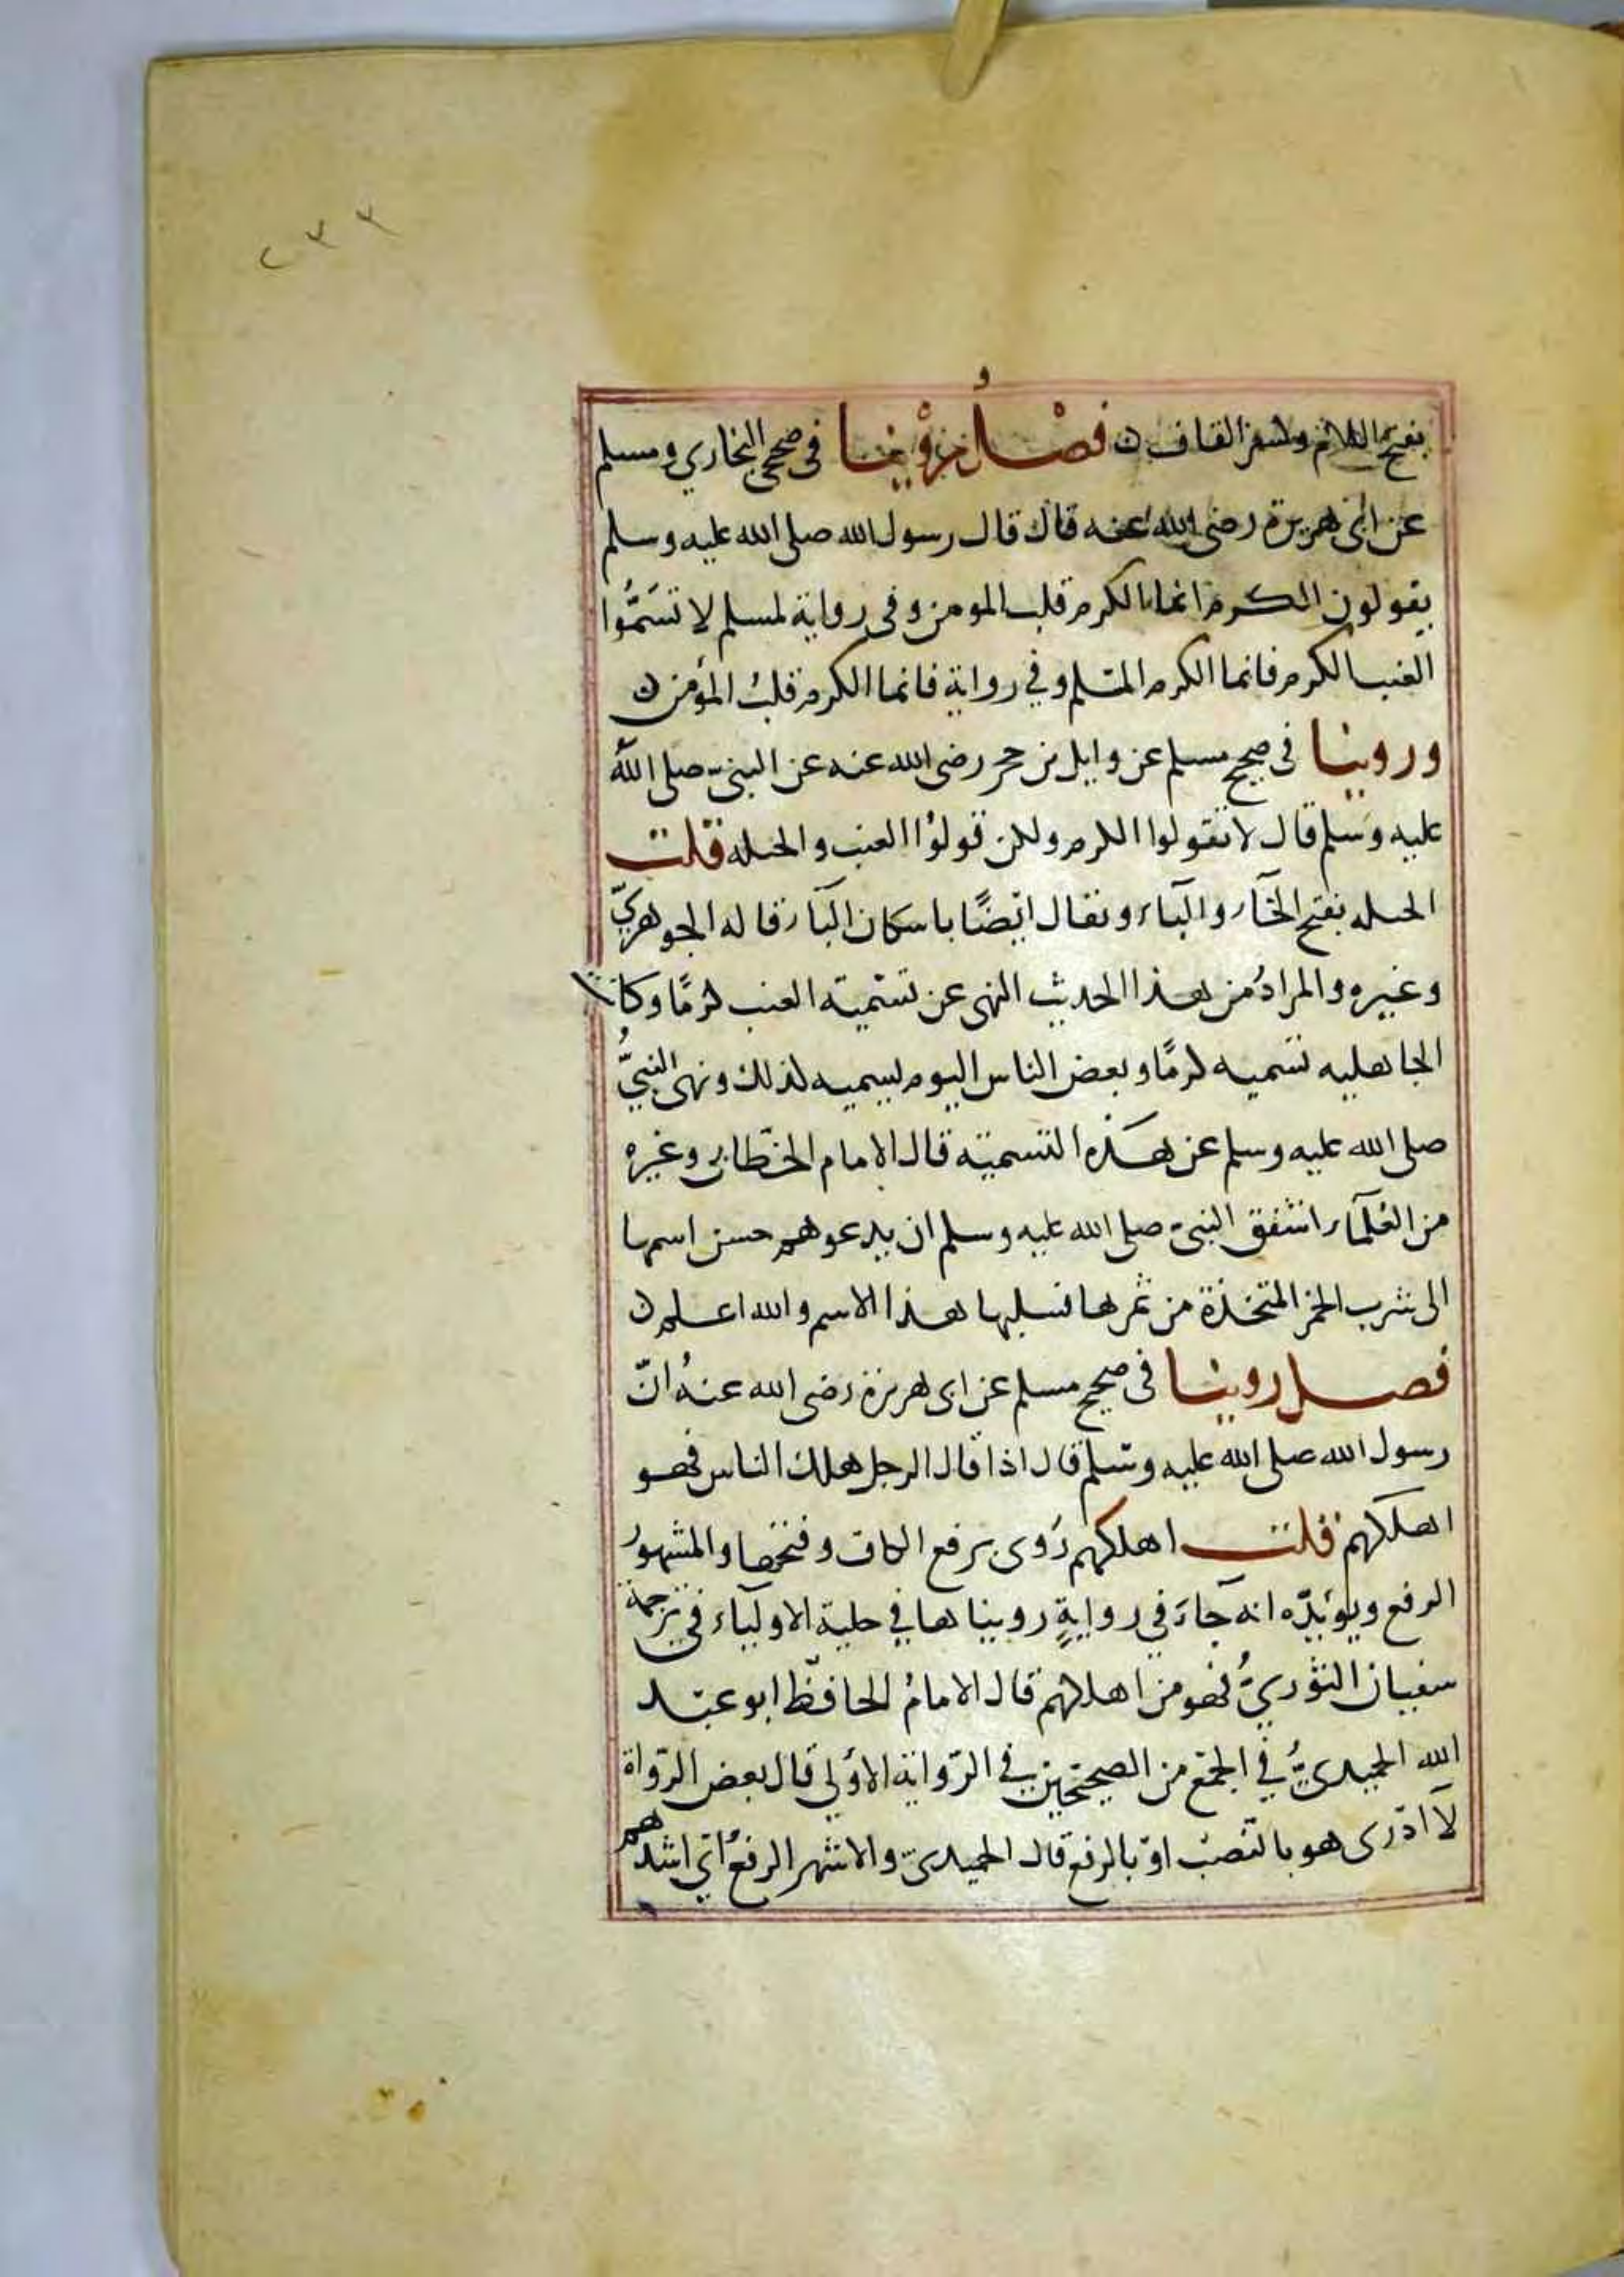 ٢٣٣
بفتح اللام وكسر القاف ن فصل روينا في صحيحي البخاري ومسلم
عن ابى هريرة رضى الله عنه قال قال رسول الله صلى الله عليه وسلم
يقولون الكرم انما الكرم قلب المومن وفى رواية لمسلم لا تسَمُّوا
العنب الكرم فانما الكرم المسلم وفي رواية فانما الكرم قلبُ المؤمن ن
وروينا فى صحيح مسلم عن وايل بن حجر رضى الله عنه عن النبىّ صلى الله
عليه وسَلم قال لا تقولوا الكرم ولكن قولوُا العنب والحبله قلت
الحبله بفتح الحَآء والبآء ويقال ايضًا باسكان البآء قاله الجوهريّ
وغيره والمرادُ من هذا الحديث النهى عن تسْمية العنب كرمًا وكانت
الجاهليه تسَميه كرمًا وبعض الناس اليوم يسميه كذلك ونهى النبيُّ
صلى الله عليه وسلم عن هذه التسمية قال الامام الخطّابى وغيره
من العُلَمآء اشفق النبىّ صلى الله عليه وسلم ان يدعوهم حسن اسمها
الى شرب الخمر المتخذة من ثمرها فسلبها هذا الاسم والله اعلم ن
فصل روينا فى صحيح مسلم عن ابى هريرة رضى الله عنهُ انّ
رسول الله صلى الله عليه وسَلم قال اذا قال الرجل هلك الناس فهو
اهلكهم قلت اهلكهم رَوى برفع الكاف وفتحها والمشهورُ
الرفع ويؤيّده انه جآءَ في روايةٍ رويناها في حلية الاوليآء في ترجمة
سفيان الثوْريُّ فهو من اهلكهم قال الامامُ الحافظ ابو عبْد
الله الحميديُّ في الجمْع من الصحيحَين في الرّواية الاوُلي قال بعض الرّواة
لآ ادْرى هو بالنصْب اوْ بالرفع قال الحميدىّ والاشهر الرفعُ ائ اشدهم